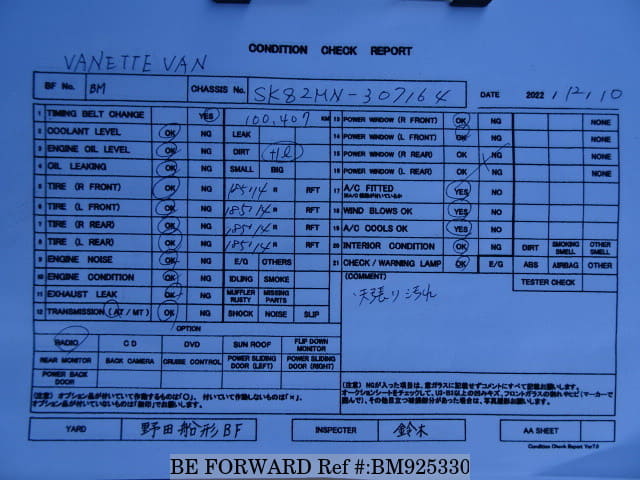 CONDITION CHECK REPORT
VANETTE VAN
BF No. BM CHASSIS No. SK82MN-307164 DATE 2022, 12, 10
1 TIMING BELT CHANGE YES 100,407 KM
2 COOLANT LEVEL OK NG LEAK
3 ENGINE OIL LEVEL OK NG DIRT
4 OIL LEAKING OK NG SMALL BIG
5 TIRE (R FRONT) OK NG 185/14 R RFT
6 TIRE (L FRONT) OK NG 185/14 R RFT
7 TIRE (R REAR) OK NG 185/14 R RFT
8 TIRE (L REAR) OK NG 185/14 R RFT
9 ENGINE NOISE OK NG E/G OTHERS
10 ENGINE CONDITION OK NG IDLING SMOKE
11 EXHAUST LEAK OK NG MUFFLER RUSTY MISSING PARTS
12 TRANSMISSION (AT / MT) OK NG SHOCK NOISE SLIP
OPTION
RADIO CD DVD SUN ROOF FLIP DOWN MONITOR
REAR MONITOR BACK CAMERA CRUISE CONTROL POWER SLIDING DOOR (LEFT) POWER SLIDING DOOR (RIGHT)
POWER BACK DOOR
(注意) オプション品が付いていて作動するものは「〇」、付いていて作動しないものは「×」、
オプション品が付いていないものは「斜印」でお願いします。
13 POWER WINDOW (R FRONT) OK NG NONE
14 POWER WINDOW (L FRONT) OK NG NONE
15 POWER WINDOW (R REAR) OK NG NONE
16 POWER WINDOW (L REAR) OK NG NONE
17 A/C FITTED YES
18 WIND BLOWS OK YES
19 A/C COOLS OK YES
20 INTERIOR CONDITION OK NG DIRT SMOKING SMELL OTHER SMELL
21 CHECK / WARNING LAMP OK E/G ABS AIRBAG OTHER
(COMMENT) TESTER CHECK
天張り汚れ
(注意) NGが入った項目は、
YARD 野田船形BF INSPECTER 鈴木 AA SHEET
Condition Check Report Ver7.0
BE FORWARD Ref #:BM925330